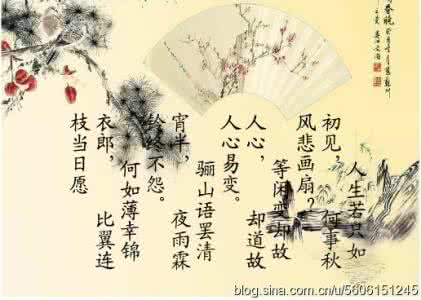 春晚
人生若只如
初见， 何事秋
风悲画扇？
等闲变却故
人心， 却道故
人心易变。
骊山语罢清
宵半， 夜雨霖
铃终不怨。
何如薄幸锦
衣郎， 比翼连
枝当日愿
blog.sina.com.cn/u/5606151245